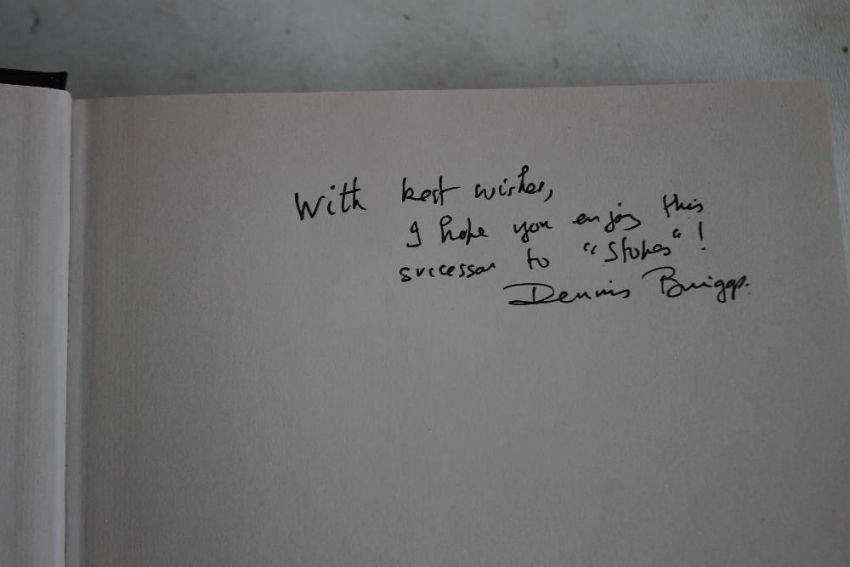 With best wishes,
I hope you enjoy this
successor to "Stokes"!
Dennis Briggs.